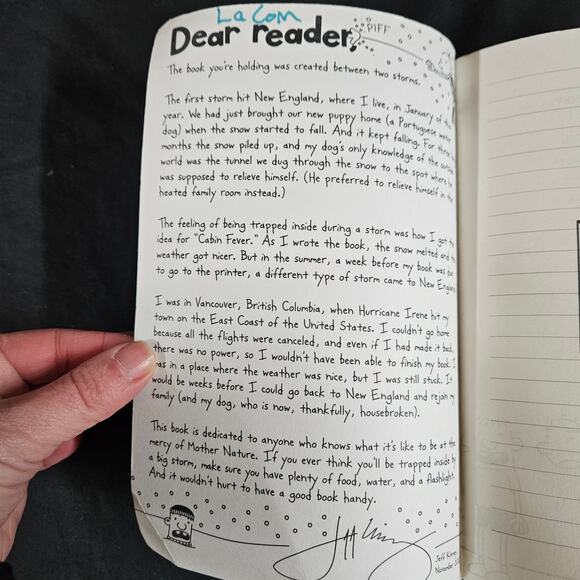 La Com
Dear reader,
PIFF
The book you're holding was created between two storms.
The first storm hit New England, where I live, in January of this
year. We had just brought our new puppy home (a Portuguese water
dog) when the snow started to fall. And it kept falling. For three
months the snow piled up, and my dog's only knowledge of the outside
world was the tunnel we dug through the snow to the spot where he
was supposed to relieve himself. (He preferred to relieve himself in the
heated family room instead.)
The feeling of being trapped inside during a storm was how I got the
idea for "Cabin Fever." As I wrote the book, the snow melted and the
weather got nicer. But in the summer, a week before my book was due
to go to the printer, a different type of storm came to New England.
I was in Vancouver, British Columbia, when Hurricane Irene hit my
town on the East Coast of the United States. I couldn't go home
because all the flights were canceled, and even if I had made it back,
there was no power, so I wouldn't have been able to finish my book. I
was in a place where the weather was nice, but I was still stuck. It
would be weeks before I could go back to New England and rejoin my
family (and my dog, who is now, thankfully, housebroken).
This book is dedicated to anyone who knows what it's like to be at the
mercy of Mother Nature. If you ever think you'll be trapped inside by
a big storm, make sure you have plenty of food, water, and a flashlight.
And it wouldn't hurt to have a good book handy.
Jeff Kinney
November